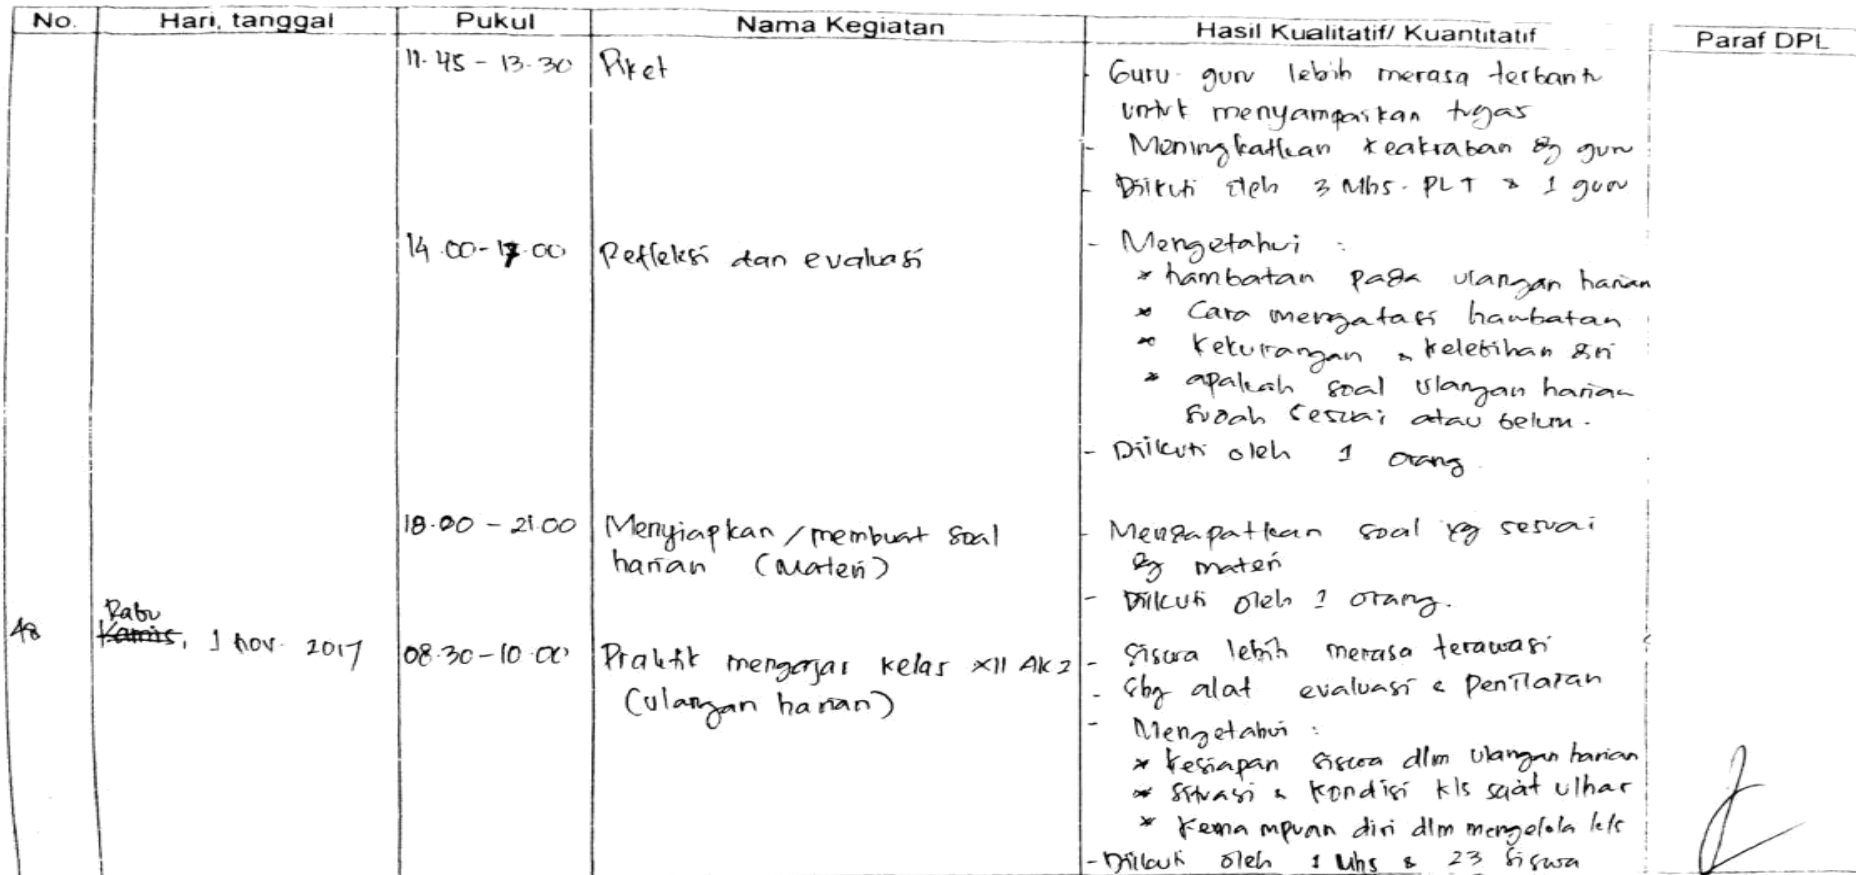 No. Hari, tanggal Pukul Nama Kegiatan Hasil Kualitatif/ Kuantitatif Paraf DPL
11.45 - 13.30 Piket - Guru-guru lebih merasa terbantu
untuk menyampaikan tugas
- Meningkatkan keakraban dg guru
- Diikuti oleh 3 Mhs. PLT & 1 guru
14.00-17.00 Refleksi dan evaluasi - Mengetahui :
* hambatan pada ulangan harian
* Cara mengatasi hambatan
* Kekurangan & kelebihan diri
* apakah soal ulangan harian
sudah sesuai atau belum.
- Diikuti oleh 1 orang.
18.00 - 21.00 Menyiapkan / membuat soal - Mendapatkan soal yg sesuai
harian (Materi) dg materi
- Diikuti oleh 1 orang.
48 Rabu Kamis, 1 Nov. 2017 08.30-10.00 Praktik mengajar kelas XII AK 2 - Siswa lebih merasa terawasi
(ulangan harian) - Sbg alat evaluasi & penilaian
- Mengetahui :
* kesiapan siswa dlm ulangan harian
* Situasi & kondisi kls saat ulhar
* Kemampuan diri dlm mengelola kls
- Diikuti oleh 1 Mhs & 23 siswa